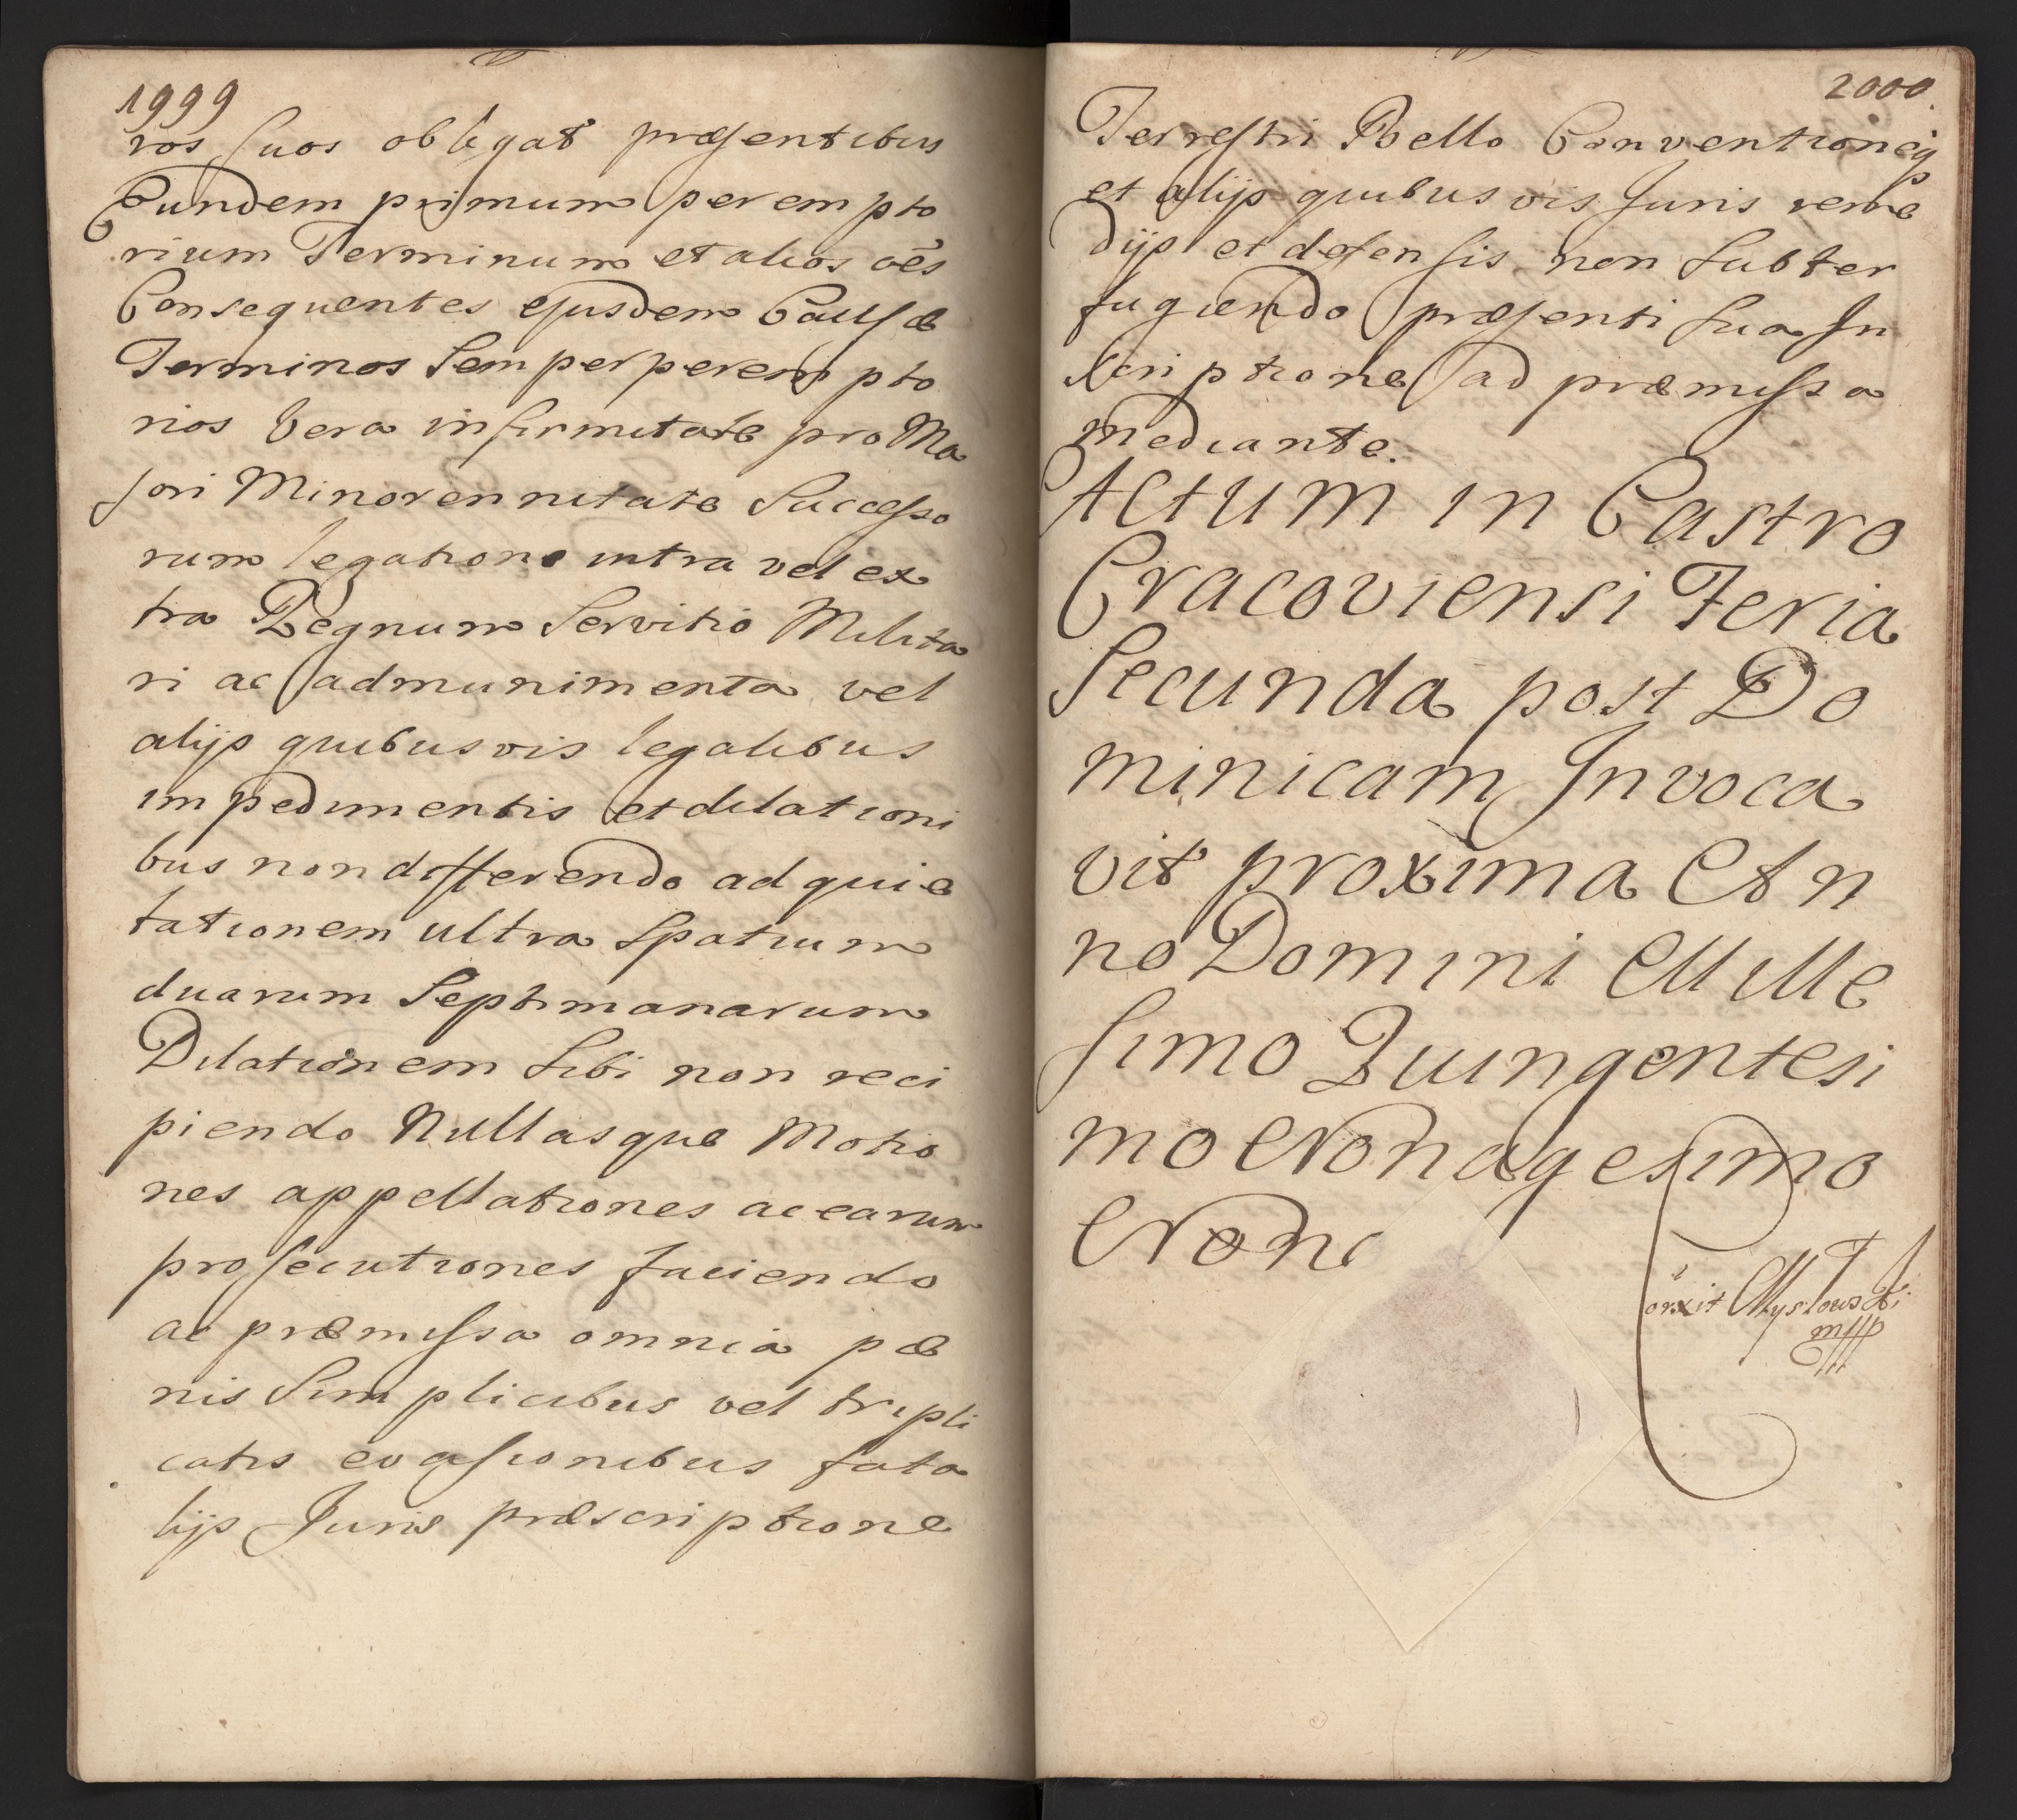 1999
ros suos obligat præsentibus
Eundem primum perempto
rium Terminum et alios oēs
Consequentes ejusdem Causæ
Terminos Semper perempto
rios Vera infirmitate pro Ma
jori Minorennitate Successo
rum legatione intra vel ex
tra Regnum Servitio Milita
ri ac ad munimenta vel
alijs quibusvis legalibus
impedimentis et dilationi
bus non differendo ad quie
tationem ultra Spatium
duarum Septimanarum
Dilationem Sibi non reci
piendo Nullasque Motio
nes appellationes ac earum
prosecutiones faciendo
ac præmissa omnia pæ
nis Simplicibus vel tripli
catis evasionibus fata
lijs Juris præscriptione
2000
Terrestri Bello Conventioneq
et alijs quibusvis Juris reme
dijs et defensis non Subter
fugiendo præsenti Sua In
scriptione ad præmissa
mediante.
Actum in Castro
Cracoviensi Feria
Secunda post Do
minicam Invoca
vit proxima An
no Domini Mille
simo Quingentesi
mo Nonagesimo
Non